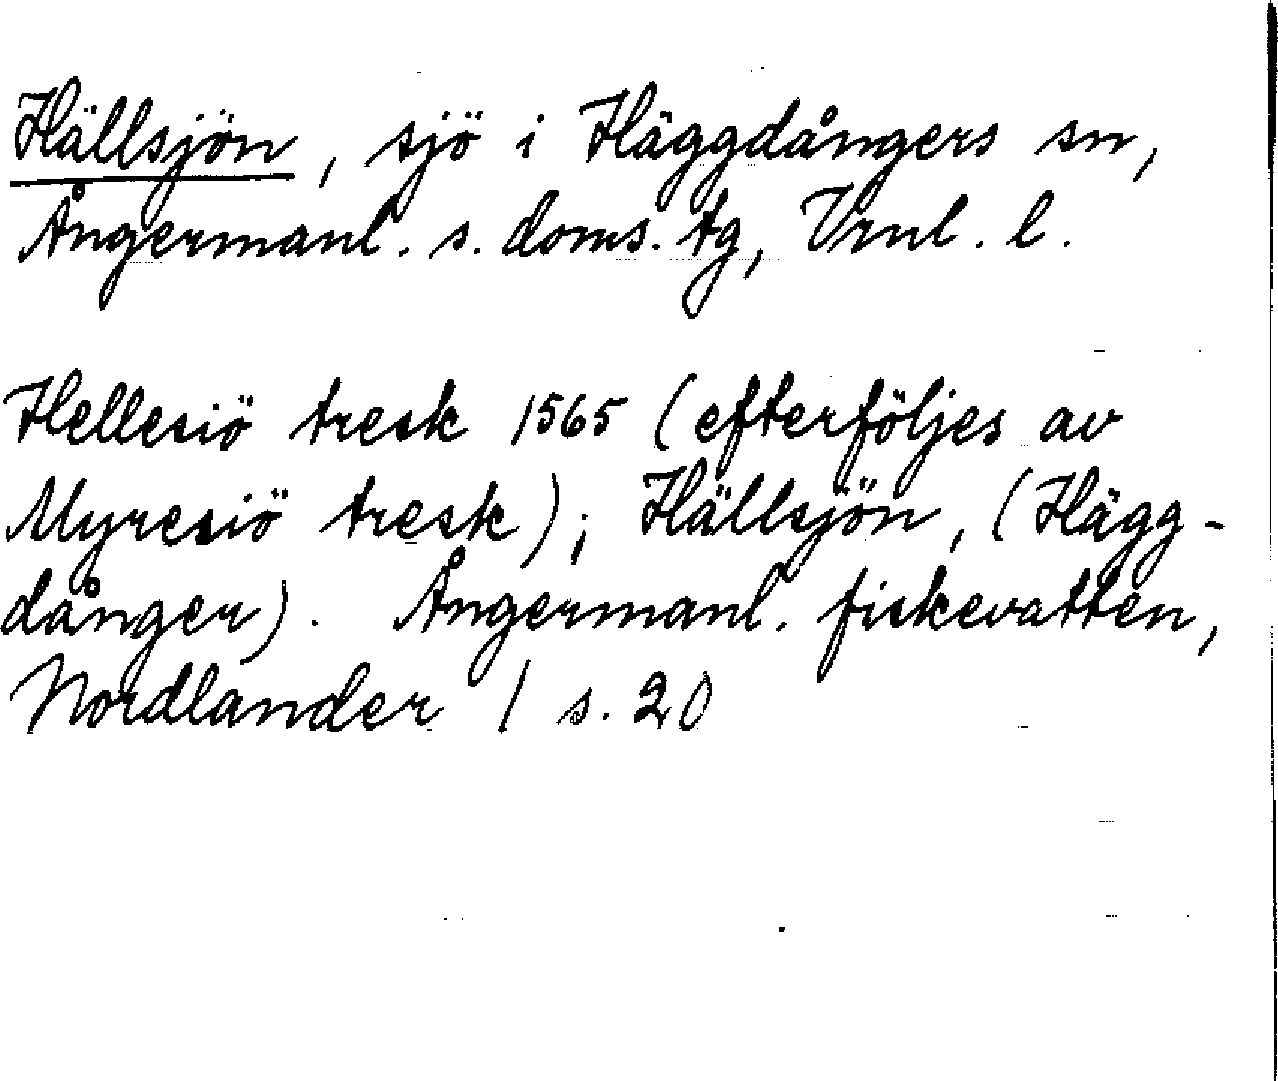 Hällsjön, sjö i Häggdångers sn,
Ångermanl. s. doms. tg, Vrnl. l.
Hellesiö tresk 1565 (efterföljes av
Myresiö tresk); Hällsjön, (Hägg-
dånger). Ångermanl. fiskevatten,
Nordlander / s. 20